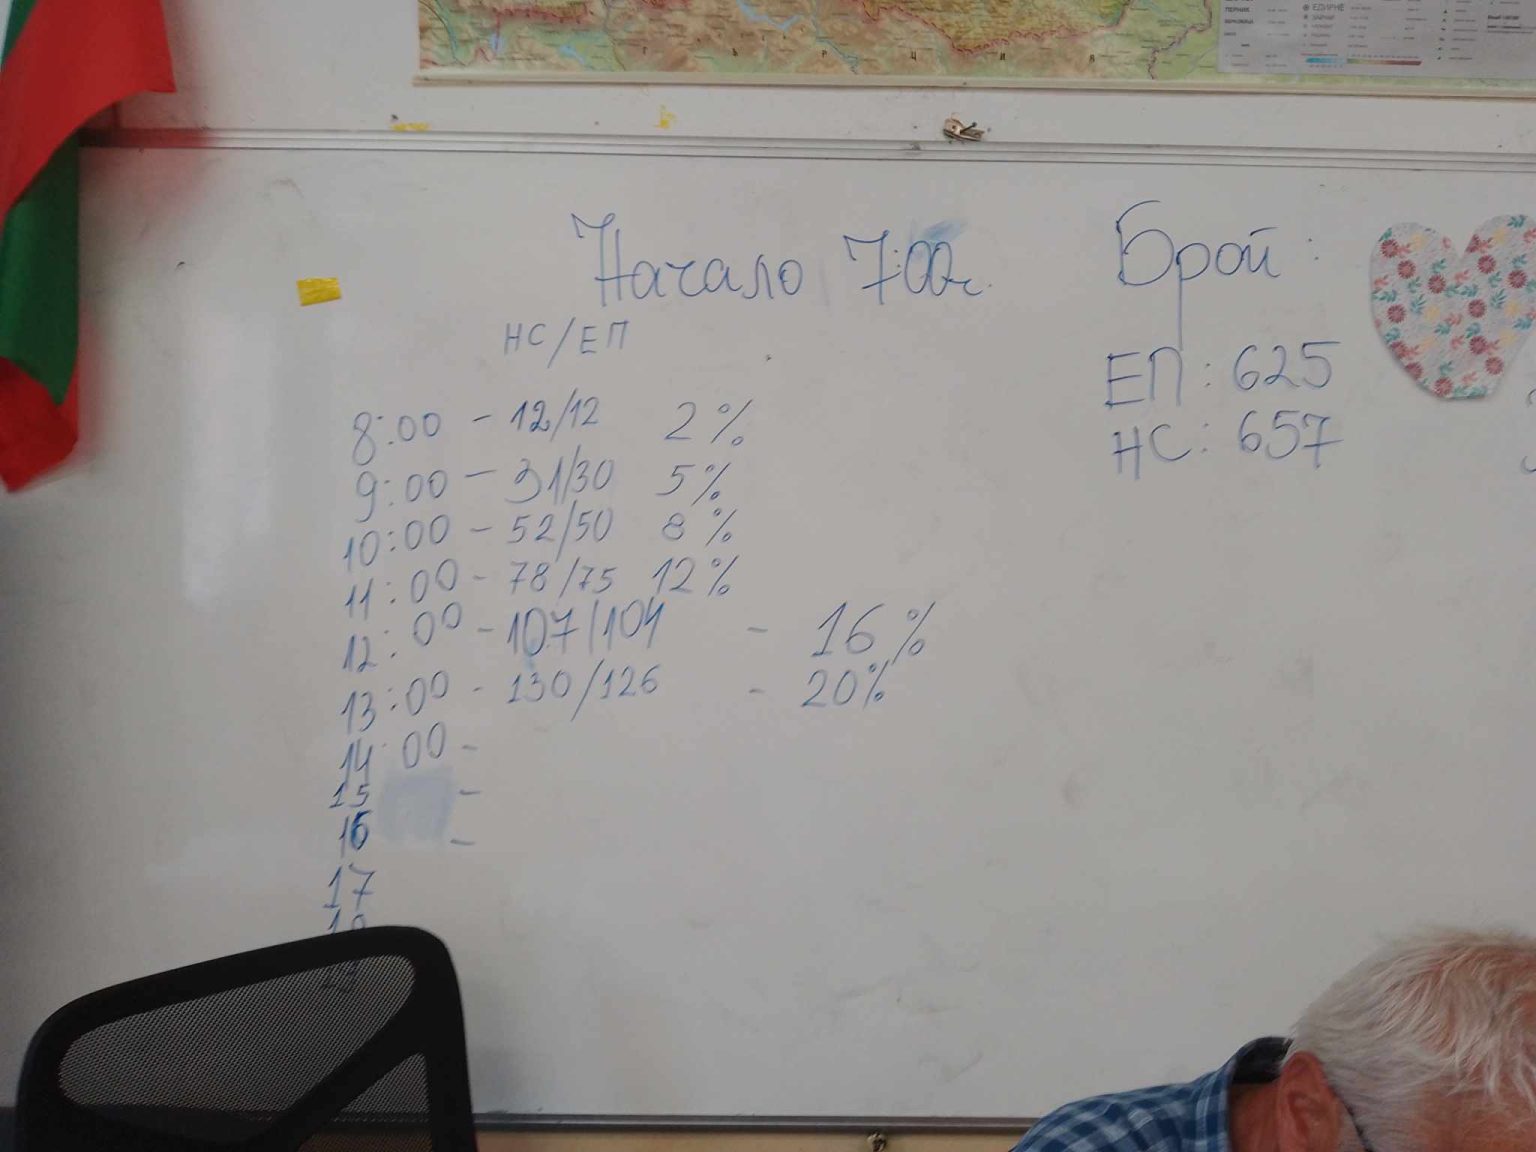 ЕДИРНЕ
Начало 7:00ч.
Брой:
НС/ЕП
ЕП: 625
НС: 657
8:00 - 12/12 2%
9:00 - 31/30 5%
10:00 - 52/50 8%
11:00 - 78/75 12%
12:00 - 107/104 - 16%
13:00 - 130/126 - 20%
14:00 -
15 -
16 -
17